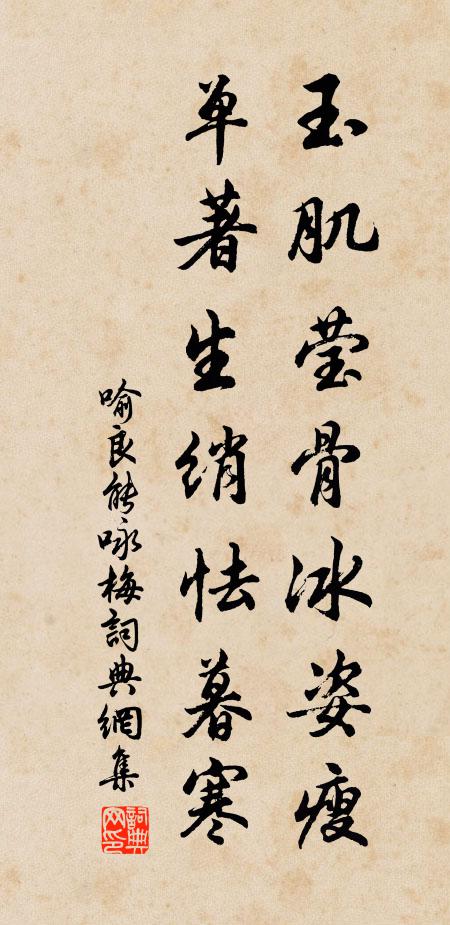 玉肌莹骨冰姿瘦
单著生绡怯暮寒
喻良能咏梅詞典網集
詞典网印